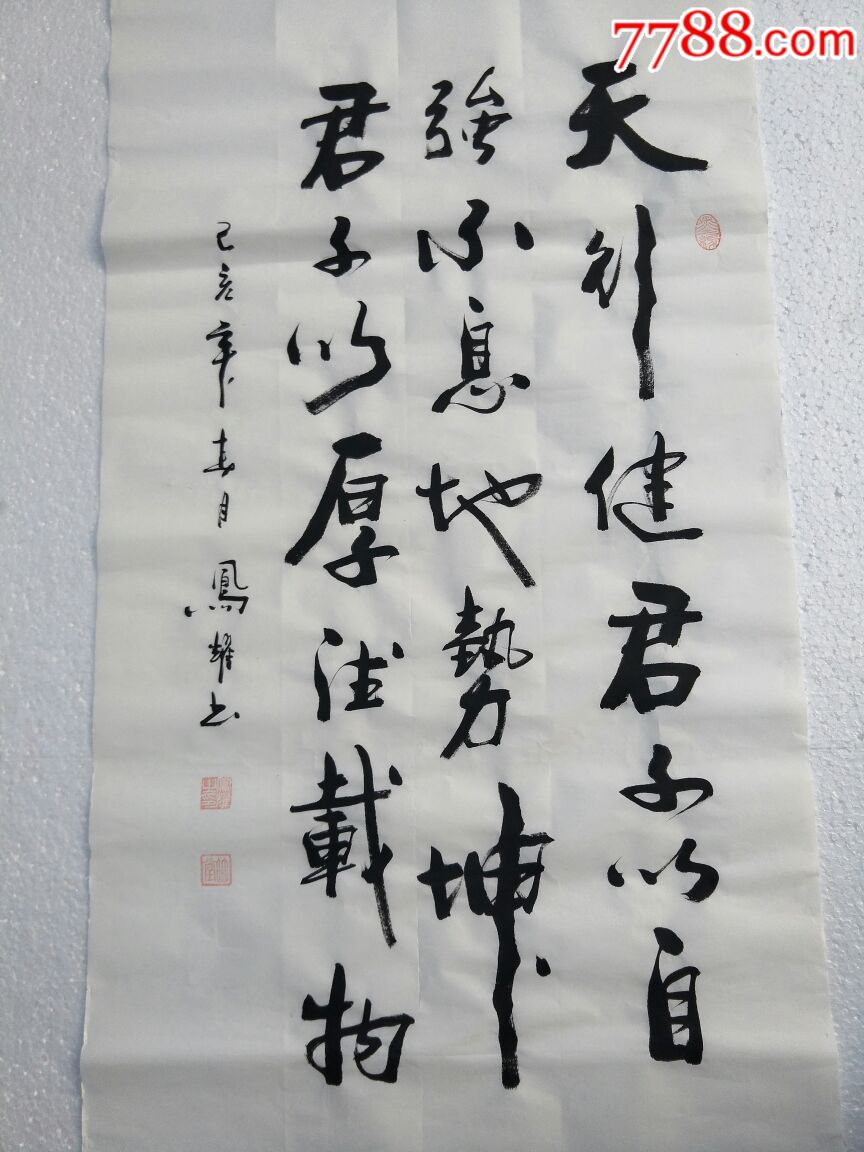 7788.com
天行健君子以自
強不息地勢坤
君子以厚德載物
己亥年春月鳳耀书